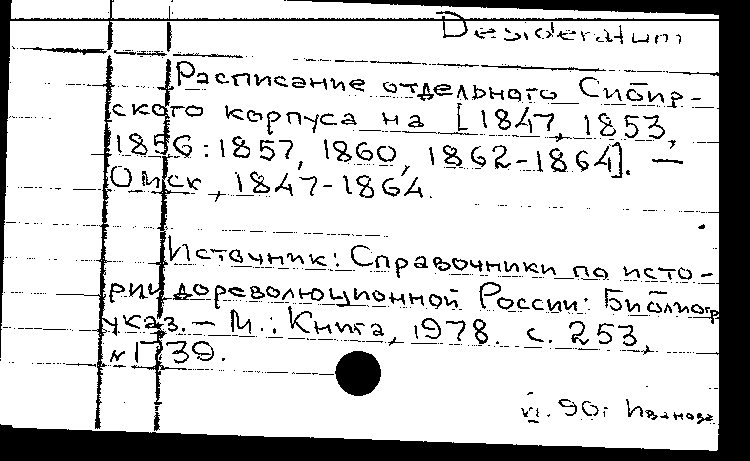 Desideratum
Расписание отдельного Сибир-
ского корпуса на [1847, 1853,
1856: 1857, 1860, 1862-1864]. —
Омск, 1847-1864.
Источник: Справочники по исто-
рии дореволюционной России: Библиогр.
указ. — М.: Книга, 1978. с. 253,
№1739.
VI. 90г Иванова